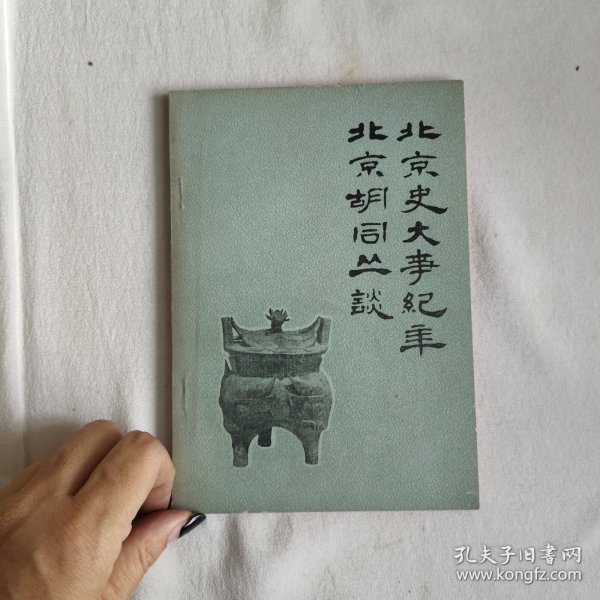 北京史大事纪年
北京胡同丛談
孔夫子旧書网
www.kongfz.com